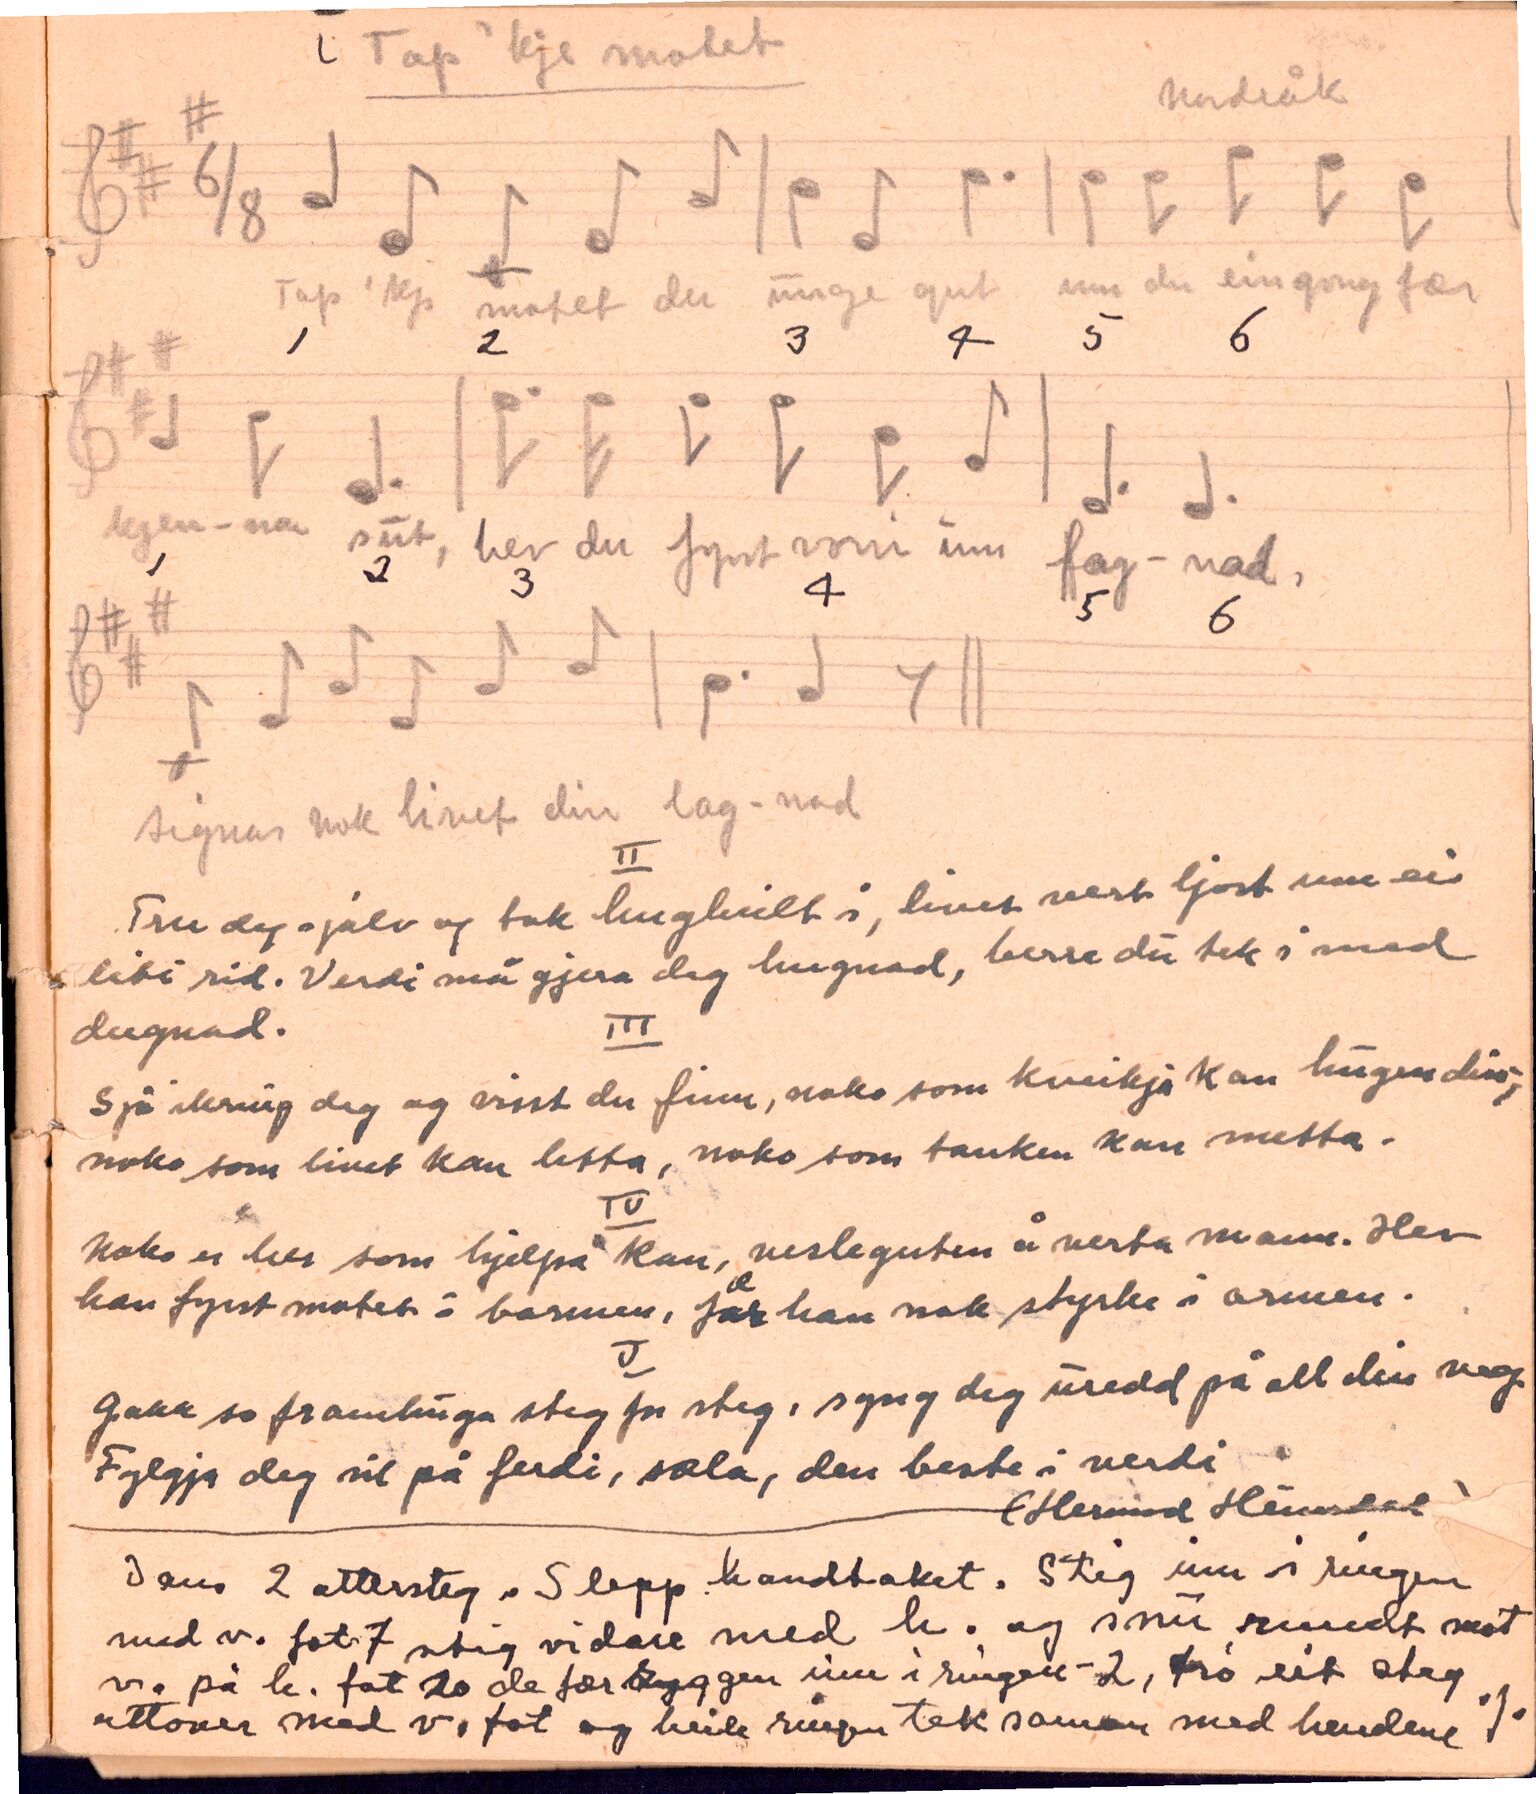 1 Tap 'kje motet
Nordråk
6/8
Tap 'kje motet du unge gut um du eingong fær
1 2 3 4 5 6
kjen-na sut, hev du fyrst vori inn fag-nad,
1 2 3 4 5 6
signar nok livet din lag-nad
II
Tru deg sjølv og tak hugheilt i, livet vert ljost um ei
liti rid. Verdi må gjera deg hugnad, berre du tek i med
dugnad.
III
Sjå ikring deg og visst du finn, noko som kveikja kan hugen din,
noko som livet kan letta, noko som tanken kan metta.
IV
Noko er her som hjelpa kan, vesleguten å verta mann. Hev
han fyrst motet i barmen, fær han nok styrke i armen.
V
Gakk so framhuga steg for steg, syng deg uredd på all din veg.
Fylgja deg vil på ferdi, sæla, den beste i verdi
(Hermund
Dans 2 attersteg. Slepp handtaket. Stig inn i ringen
med v. fot. stig vidare med h. og snu rundt mot
v. på h. fot so de fær ryggen inn i ringen - 2, tro eit steg
attover med v. fot og heile ringen tek saman med hendene ·/·